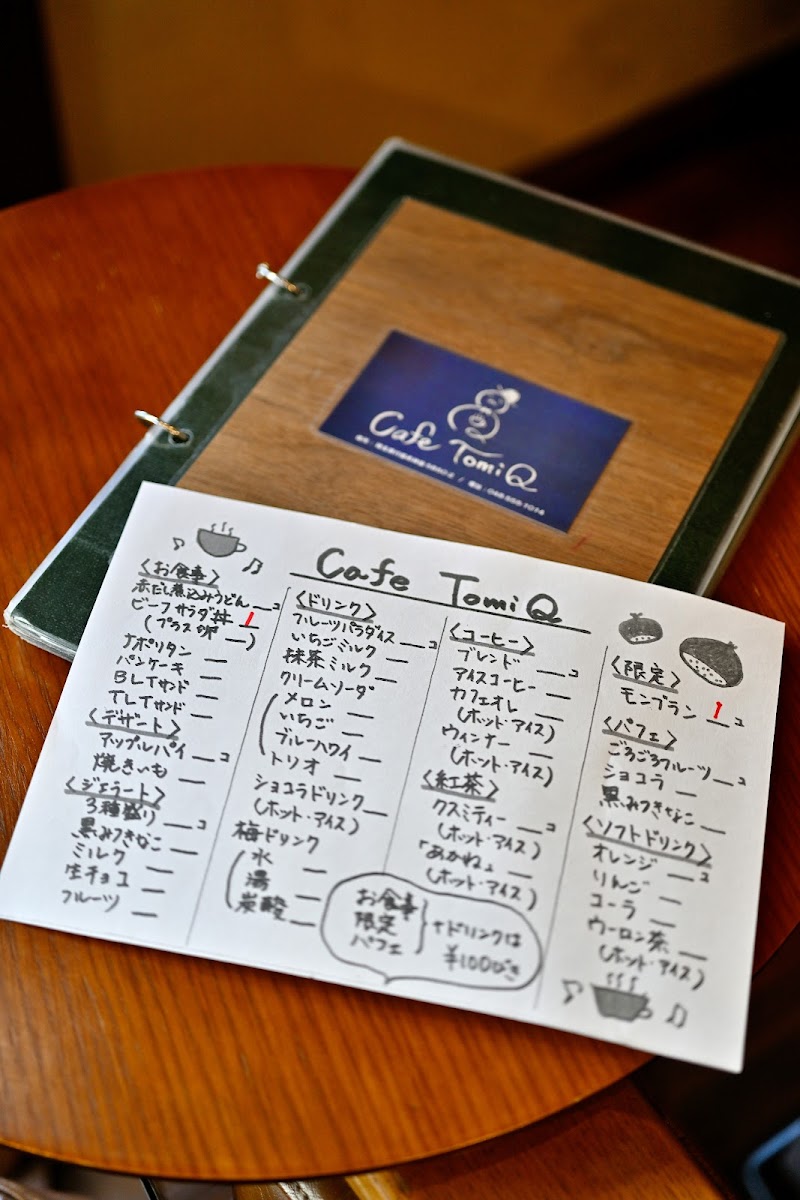 Cafe TomiQ
Cafe TomiQ
〈お食事〉
赤だし煮込みうどん __コ
ビーフサラダ丼 1
(プラス卵 __)
ナポリタン __
パンケーキ __
BLTサンド __
TLTサンド __
〈デザート〉
アップルパイ __コ
焼きいも __
〈ジェラート〉
3種盛り __コ
黒みつきなこ __
ミルク __
生チョコ __
フルーツ __
〈ドリンク〉
フルーツパラダイス __コ
いちごミルク __
抹茶ミルク __
クリームソーダ
メロン __
いちご __
ブルーハワイ __
トリオ __
ショコラドリンク __
(ホット・アイス)
梅ドリンク
水 __
湯 __
炭酸 __
〈コーヒー〉
ブレンド __コ
アイスコーヒー __
カフェオレ __
(ホット・アイス)
ウィンナー __
(ホット・アイス)
〈紅茶〉
クスミティー __コ
(ホット・アイス)
「あかね」 __
(ホット・アイス)
お食事
限定
パフェ
+ドリンクは
¥100びき
〈限定〉
モンブラン 1コ
〈パフェ〉
ごろごろフルーツ __コ
ショコラ __
黒みつきなこ __
〈ソフトドリンク〉
オレンジ __コ
りんご __
コーラ __
ウーロン茶 __
(ホット・アイス)